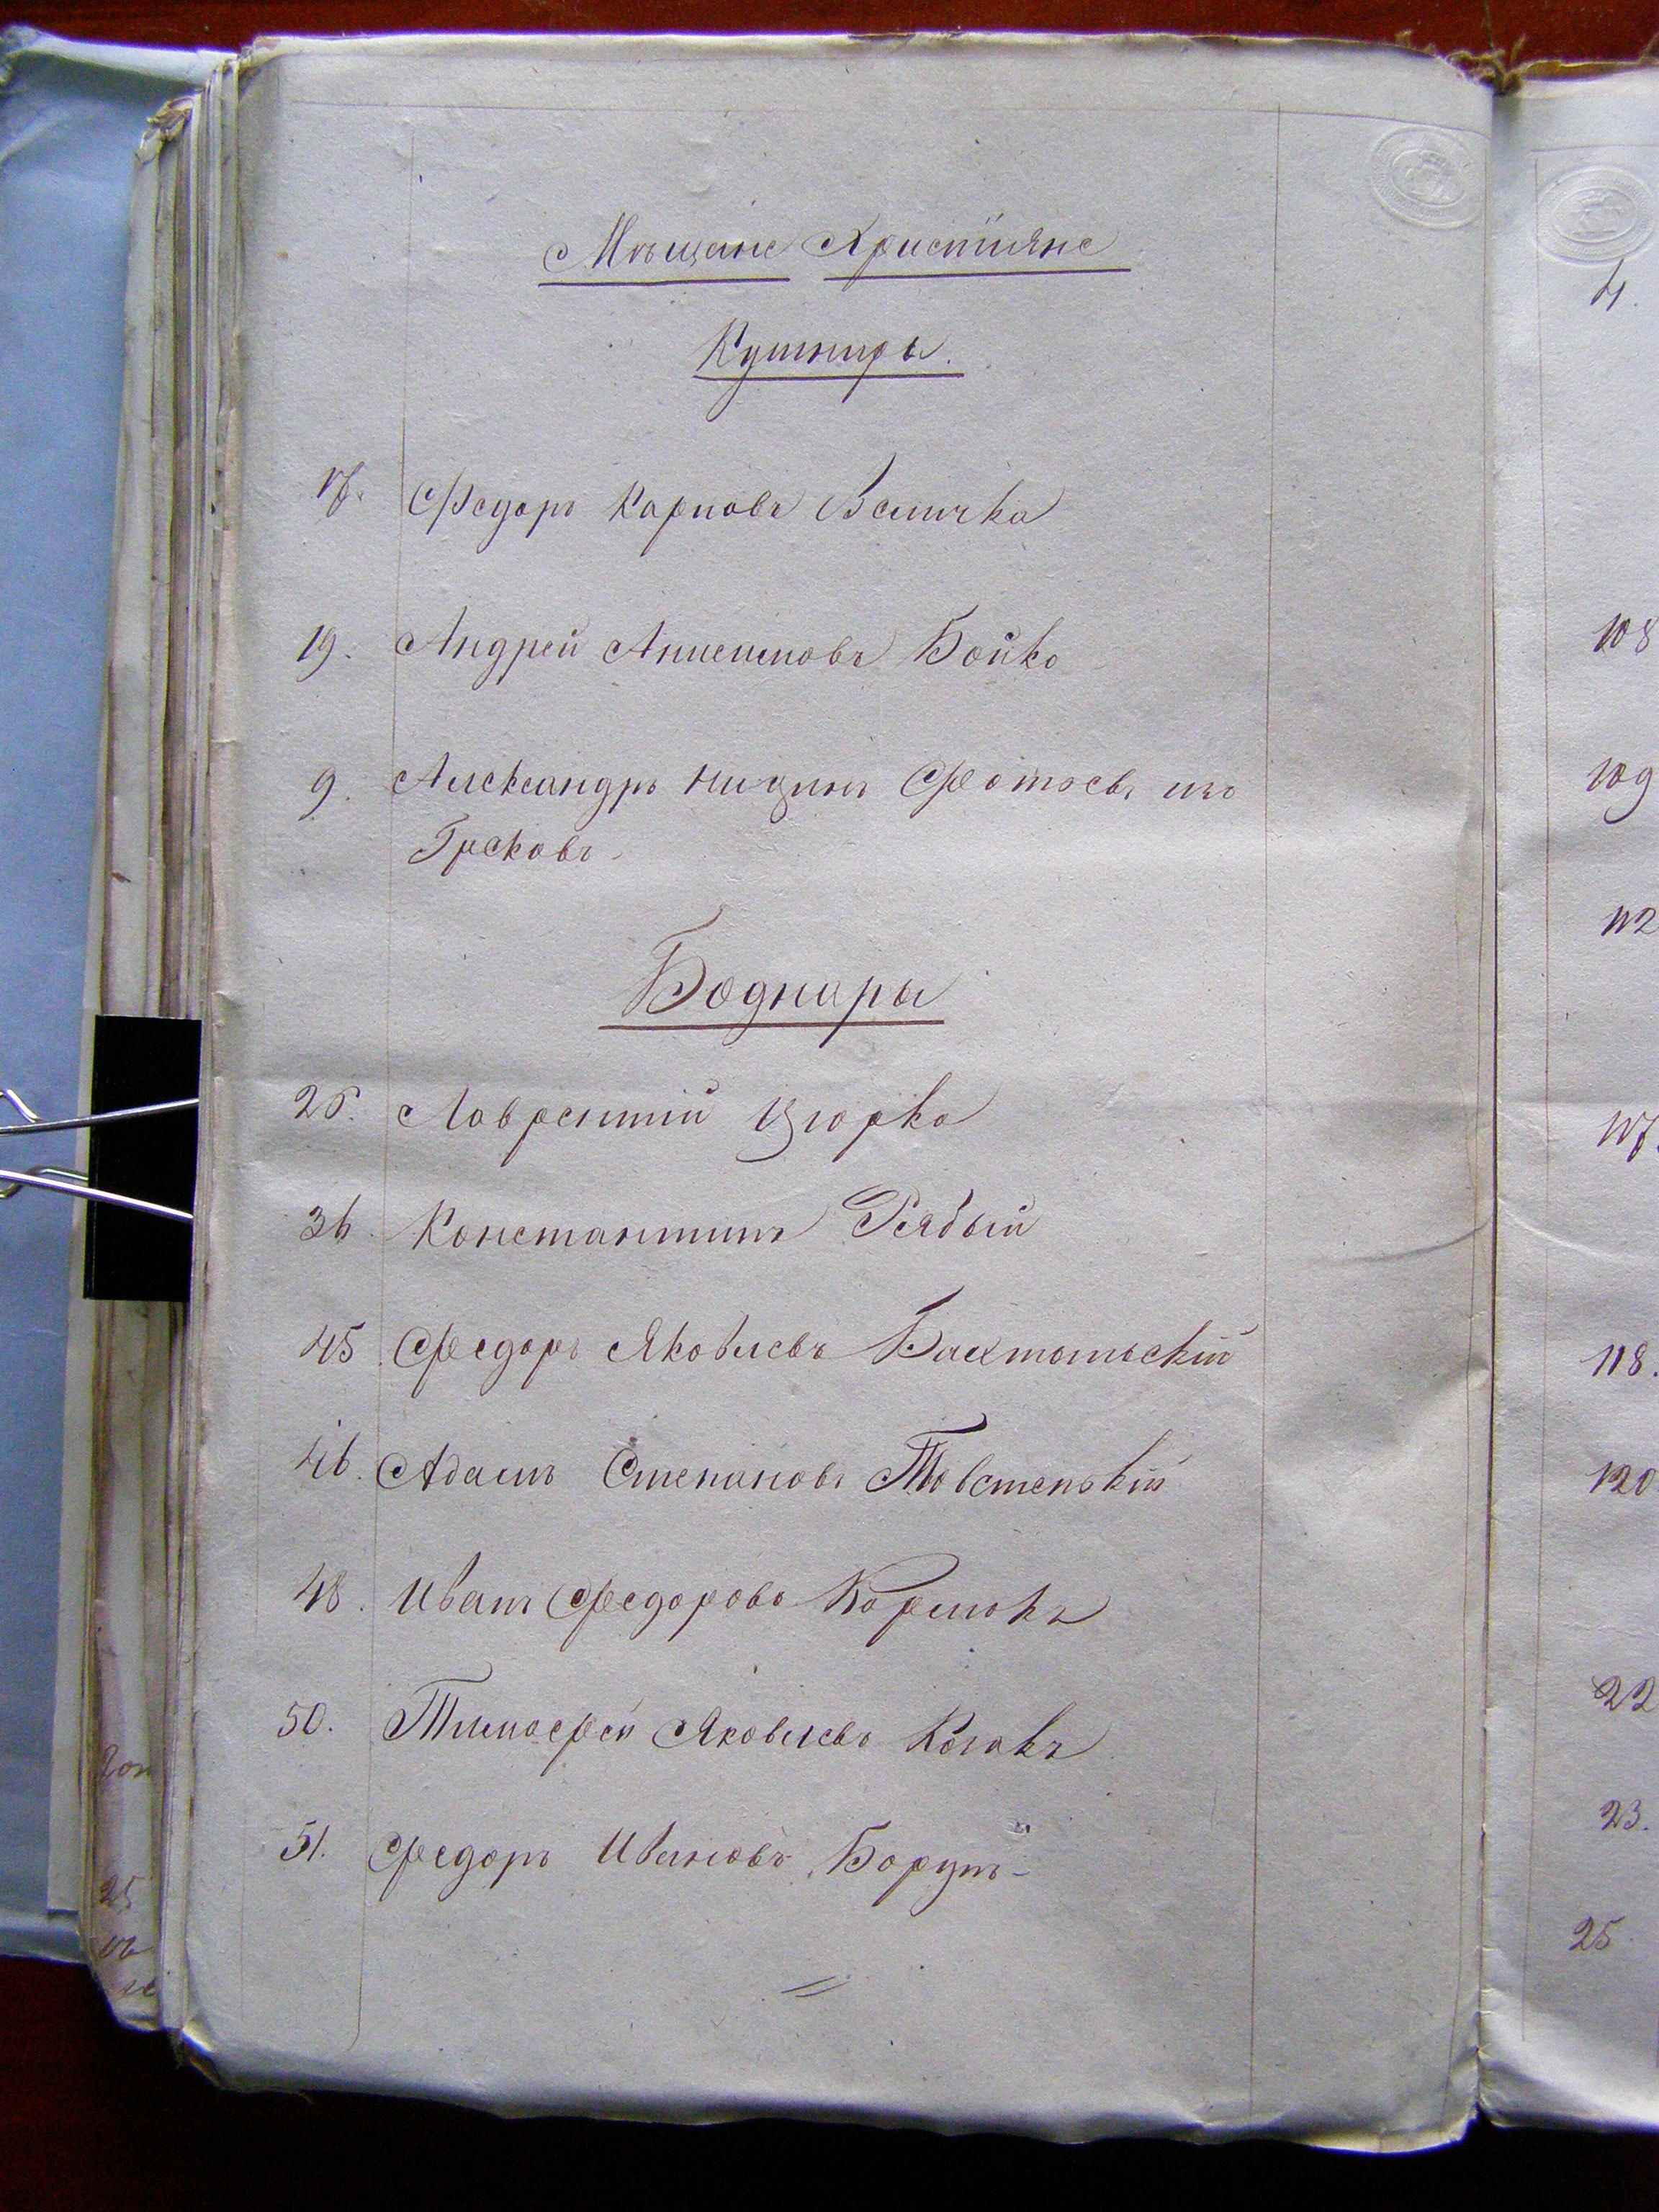 Мѣщане Християне
Кушниры.
17. Федоръ Карповъ Величка
19. Андрей Анисимовъ Бойко
9. Александръ Фотьевъ изъ
Грековъ
Боднары
25. Лаврентій Цюрка
36. Константинъ Рябый
45. Федоръ Яковлевъ Бахтольскій
46. Адамъ Степановъ Товстенькій
48. Иванъ Федоровъ Кормокъ
50. Тимофей Яковлевъ Козакъ
51. Федоръ Ивановъ Борунъ
4.
108
109
112
117.
118.
120
22
23.
25.